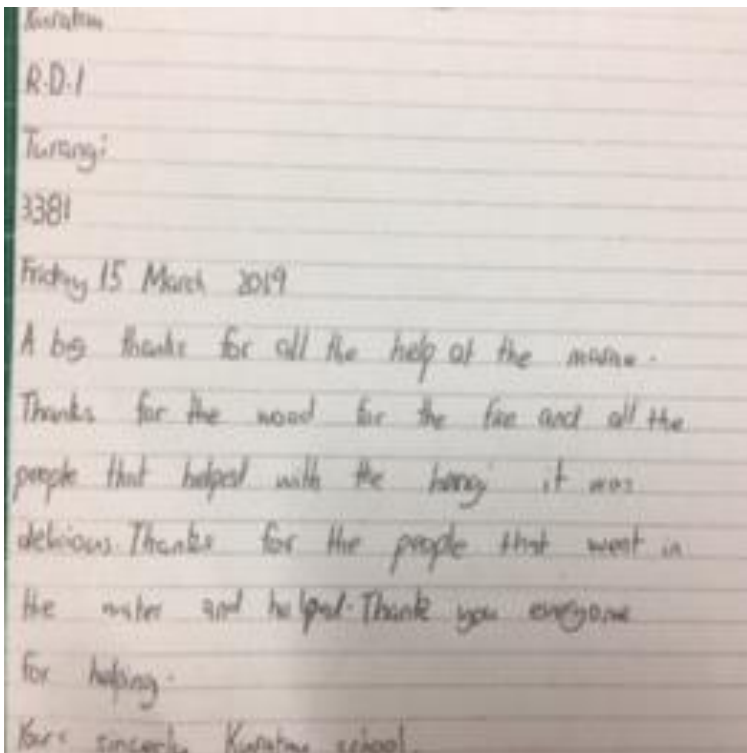 Kuratau
R.D.1
Turangi
3381
Friday 15 March 2019
A big thanks for all the help at the marae.
Thanks for the wood for the fire and all the
people that helped with the hangi it was
delicious. Thanks for the people that went in
the water and helped. Thank you everyone
for helping.
Yours sincerly Kuratau school.